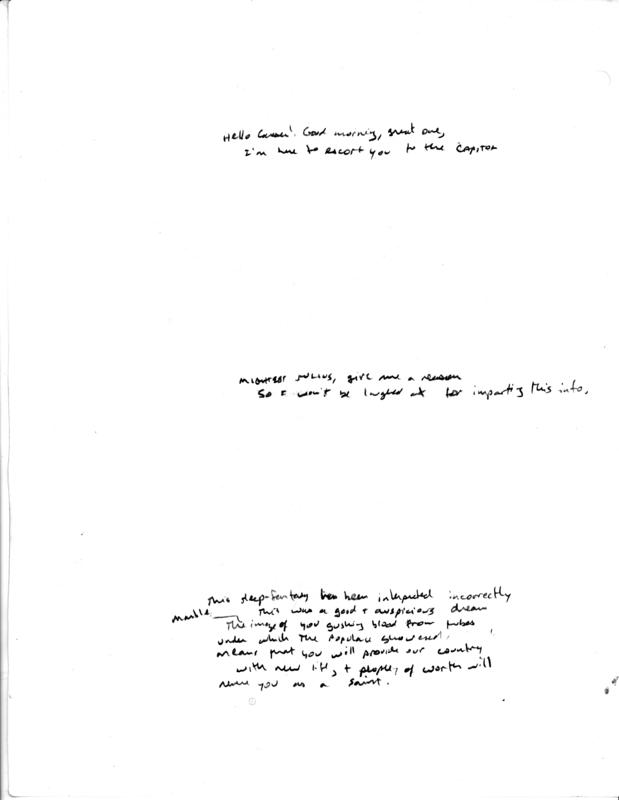 Hello Caesar! Good morning, great one,
I'm here to escort you to the CAPITOL
MIGHTIEST JULIUS, give me a reason
So I won't be laughed at for imparting this info,
This sleep-fantasy has been interpreted incorrectly
This was a good + auspicious dream
marble
The image of you gushing blood from tubes
under which the populace showered,
means that you will provide our country
with new life, + people of worth will
revere you as a saint.